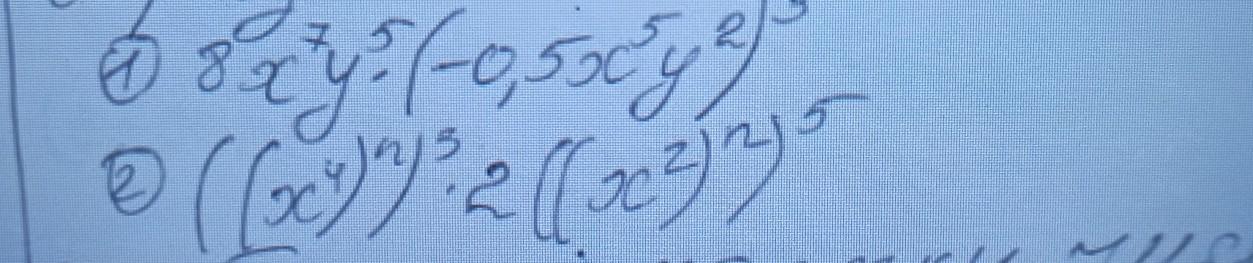 ① 8x⁷y⁵·(-0,5x⁵y²)³
② ((x⁴)ⁿ)³·2((x²)ⁿ)⁵